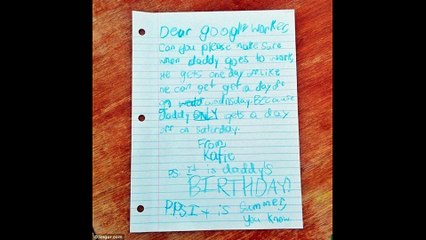 Dear google worker,
Can you please make sure
when daddy goes to work,
He gets one day. like
he can get get a day off
on wedn wednsday. BECaUse
daddy ONLY gets a day
off on saturday.
From,
Katie
P.S. It is daddy's
BIRTHDAY!
P.P.S It is summer,
you know